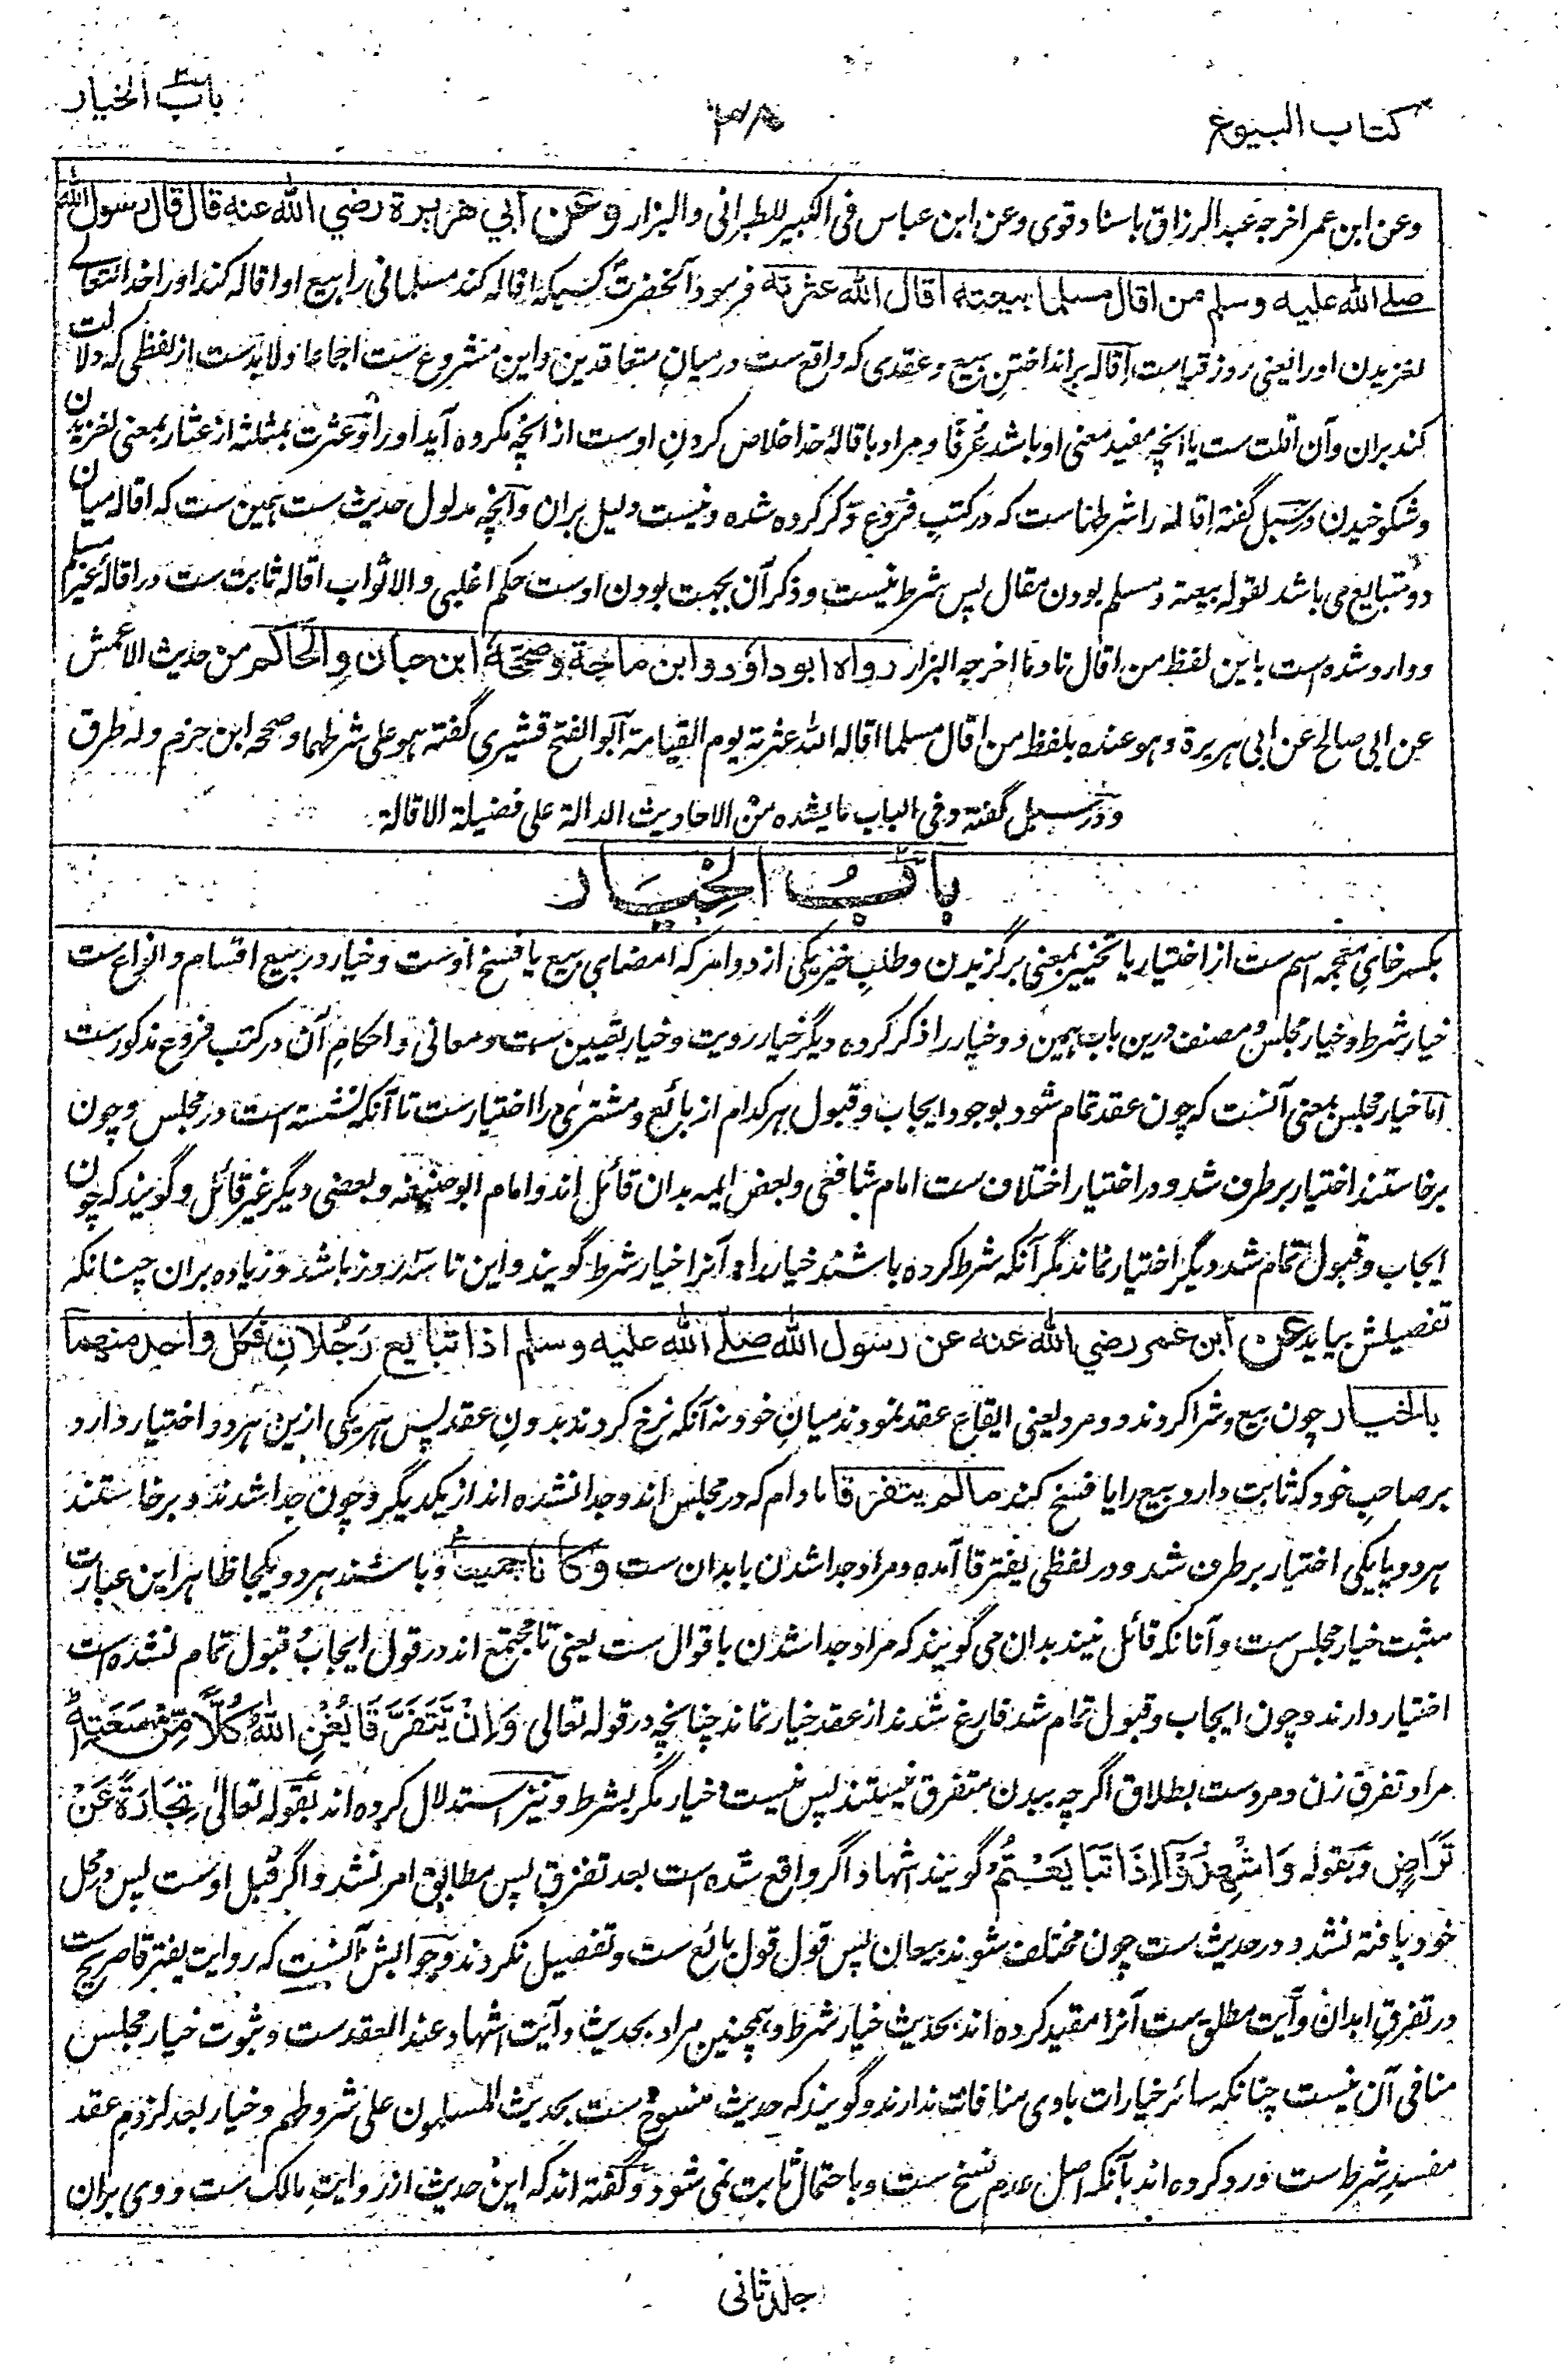 کتاب البیوع
باب الخیار
وعن ابن عمر اخرجه عبد الرزاق باسناد قوی وعن ابن عباس فی الکبیر للطبرانی والبزار وعن ابي هريرة رضي الله عنه قال قال رسول الله
صلے الله عليه وسلم من اقال مسلما بيعته اقال الله عثرته فرمود آنحضرت کسیکه اقاله کند مسلمانی را بیع او اقاله کند او را خدا تعالے
لغزیدن او را یعنی روز قیامت اقاله برانداختن بیع وعقدی که واقع ست در میان متعاقدین واین مشروع ست اجماعا ولابدست از لفظی که دلالت
کند بران وآن اقلت ست یا آنچه مفید معنی او باشد عُرفًا ومراد باقالهٔ خدا خلاص کردنِ اوست از آنچه مکروه آید او را وعثرت بمثلثه از عثار بمعنی لغزیدن
وشکوخیدن ودر سبل گفته اقاله را شرطهاست که در کتبِ فروع ذکر کرده شده ونیست دلیل بران وآنچه مدلول حدیث ست همین ست که اقاله میان
دو متبایع می باشد لقوله بیعته ومسلم بودن مقال پس شرط نیست وذکر آن بجهت بودن اوست حکم اغلبی والا ثواب اقاله ثابت ست در اقالهٔ غیر مسلم
ووارد شده ست باین لفظ من اقال نادما اخرجه البزار رواه ابو داؤد وابن ماجة وصححه ابن حبان والحاكم من حدیث الاعمش
عن ابی صالح عن ابی هریرة وهو عنده بلفظ من اقال مسلما اقاله الله عثرته یوم القیامة ابو الفتح قشیری گفته هو علی شرطهما وصححه ابن حزم وله طرق
ودر سبل گفته وفی الباب ما یشده من الاحادیث الدالة علی فضیلة الاقالة
بابُ الخِيَار
بکسر خای معجمه اسم ست از اختیار یا تخییر بمعنی برگزیدن وطلب خیر یکی از دو امر که امضای بیع یا فسخ اوست وخیار در بیع اقسام وانواع ست
خیار شرط وخیار مجلس ومصنف درین باب همین دو خیار را ذکر کرده دیگر خیار رویت وخیار تعیین ست ومعانی واحکامِ آن در کتب فروع مذکورست
اما خیار مجلس بمعنی آنست که چون عقد تمام شود بوجود ایجاب وقبول هر کدام از بائع ومشتری را اختیارست تا آنکه نشسته است در مجلس وچون
برخاستند اختیار برطرف شد ودر اختیار اختلاف ست امام شافعی وبعض ایمه بدان قائل اند وامام ابو حنیفه وبعضی دیگر غیر قائل وگویند که چون
ایجاب وقبول تمام شد دیگر اختیار نماند مگر آنکه شرط کرده باشند خیار را وآنرا خیار شرط گویند واین تا سه روز باشد وزیاده بران چنانکه
تفصیلش بیاید عن ابن عمر رضي الله عنه عن رسول الله صلے الله عليه وسلم اذا تبايع رَجُلانِ فكل واحد منهما
بالخيار چون بیع وشرا کردند دو مرد یعنی ایقاع عقد نمودند میانِ خود نه آنکه نرخ کردند بدونِ عقد پس هر یکی ازین هر دو اختیار دارد
بر صاحبِ خود که ثابت دارد بیع را یا فسخ کند مالم يتفرقا مادام که در مجلس اند وجدا نشده اند از یکدیگر وچون جدا شدند وبرخاستند
هر دو یا یکی اختیار برطرف شد ودر لفظی یفترقا آمده ومراد جدا شدن بابدان ست وكانا جميعا وباشند هر دو یکجا ظاهر این عبارت
مثبت خیار مجلس ست وآنانکه قائل نیند بدان می گویند که مراد جدا شدن باقوال ست یعنی تا مجتمع اند در قول ایجاب وقبول تمام نشده ست
اختیار دارند وچون ایجاب وقبول تمام شد فارغ شدند از عقد خیار نماند چنانچه در قوله تعالی وَاِنْ يَّتَفَرَّقَا يُغْنِ اللهُ كُلًّا مِّنْ سَعَتِهٖ
مراد تفرق زن ومردست بطلاق اگرچه ببدن متفرق نیستند پس نیست خیار مگر بشرط ونیز استدلال کرده اند بقوله تعالیٰ تِجَارَةً عَنْ
تَرَاضٍ وبقوله وَاَشْهِدُوْٓا اِذَا تَبَايَعْتُمْ گویند اشهاد اگر واقع شده ست بعد تفرق پس مطابق امر نشد واگر قبل اوست پس در محل
خود یافته نشد ودر حدیث ست چون مختلف شوند بیعان پس قول قول بائع ست وتفصیل نکردند وجوابش آنست که روایت یفترقا صریح ست
در تفرقِ ابدان وآیت مطلق ست آنرا مقید کرده اند بحدیث خیار شرط وهمچنین مراد بحدیث وآیت اشهاد عند العقدست وثبوت خیار مجلس
منافی آن نیست چنانکه سائر خیارات باوی منافات ندارند وگویند که حدیث منسوخ ست بحدیث المسلمون علی شروطهم وخیار بعد لزوم عقد
مفسدِ شرط ست ورد کرده اند بآنکه اصل عدم نسخ ست وباحتمال ثابت نمی شود وگفته اند که این حدیث از روایتِ مالک ست ووی بران
جلد ثانی